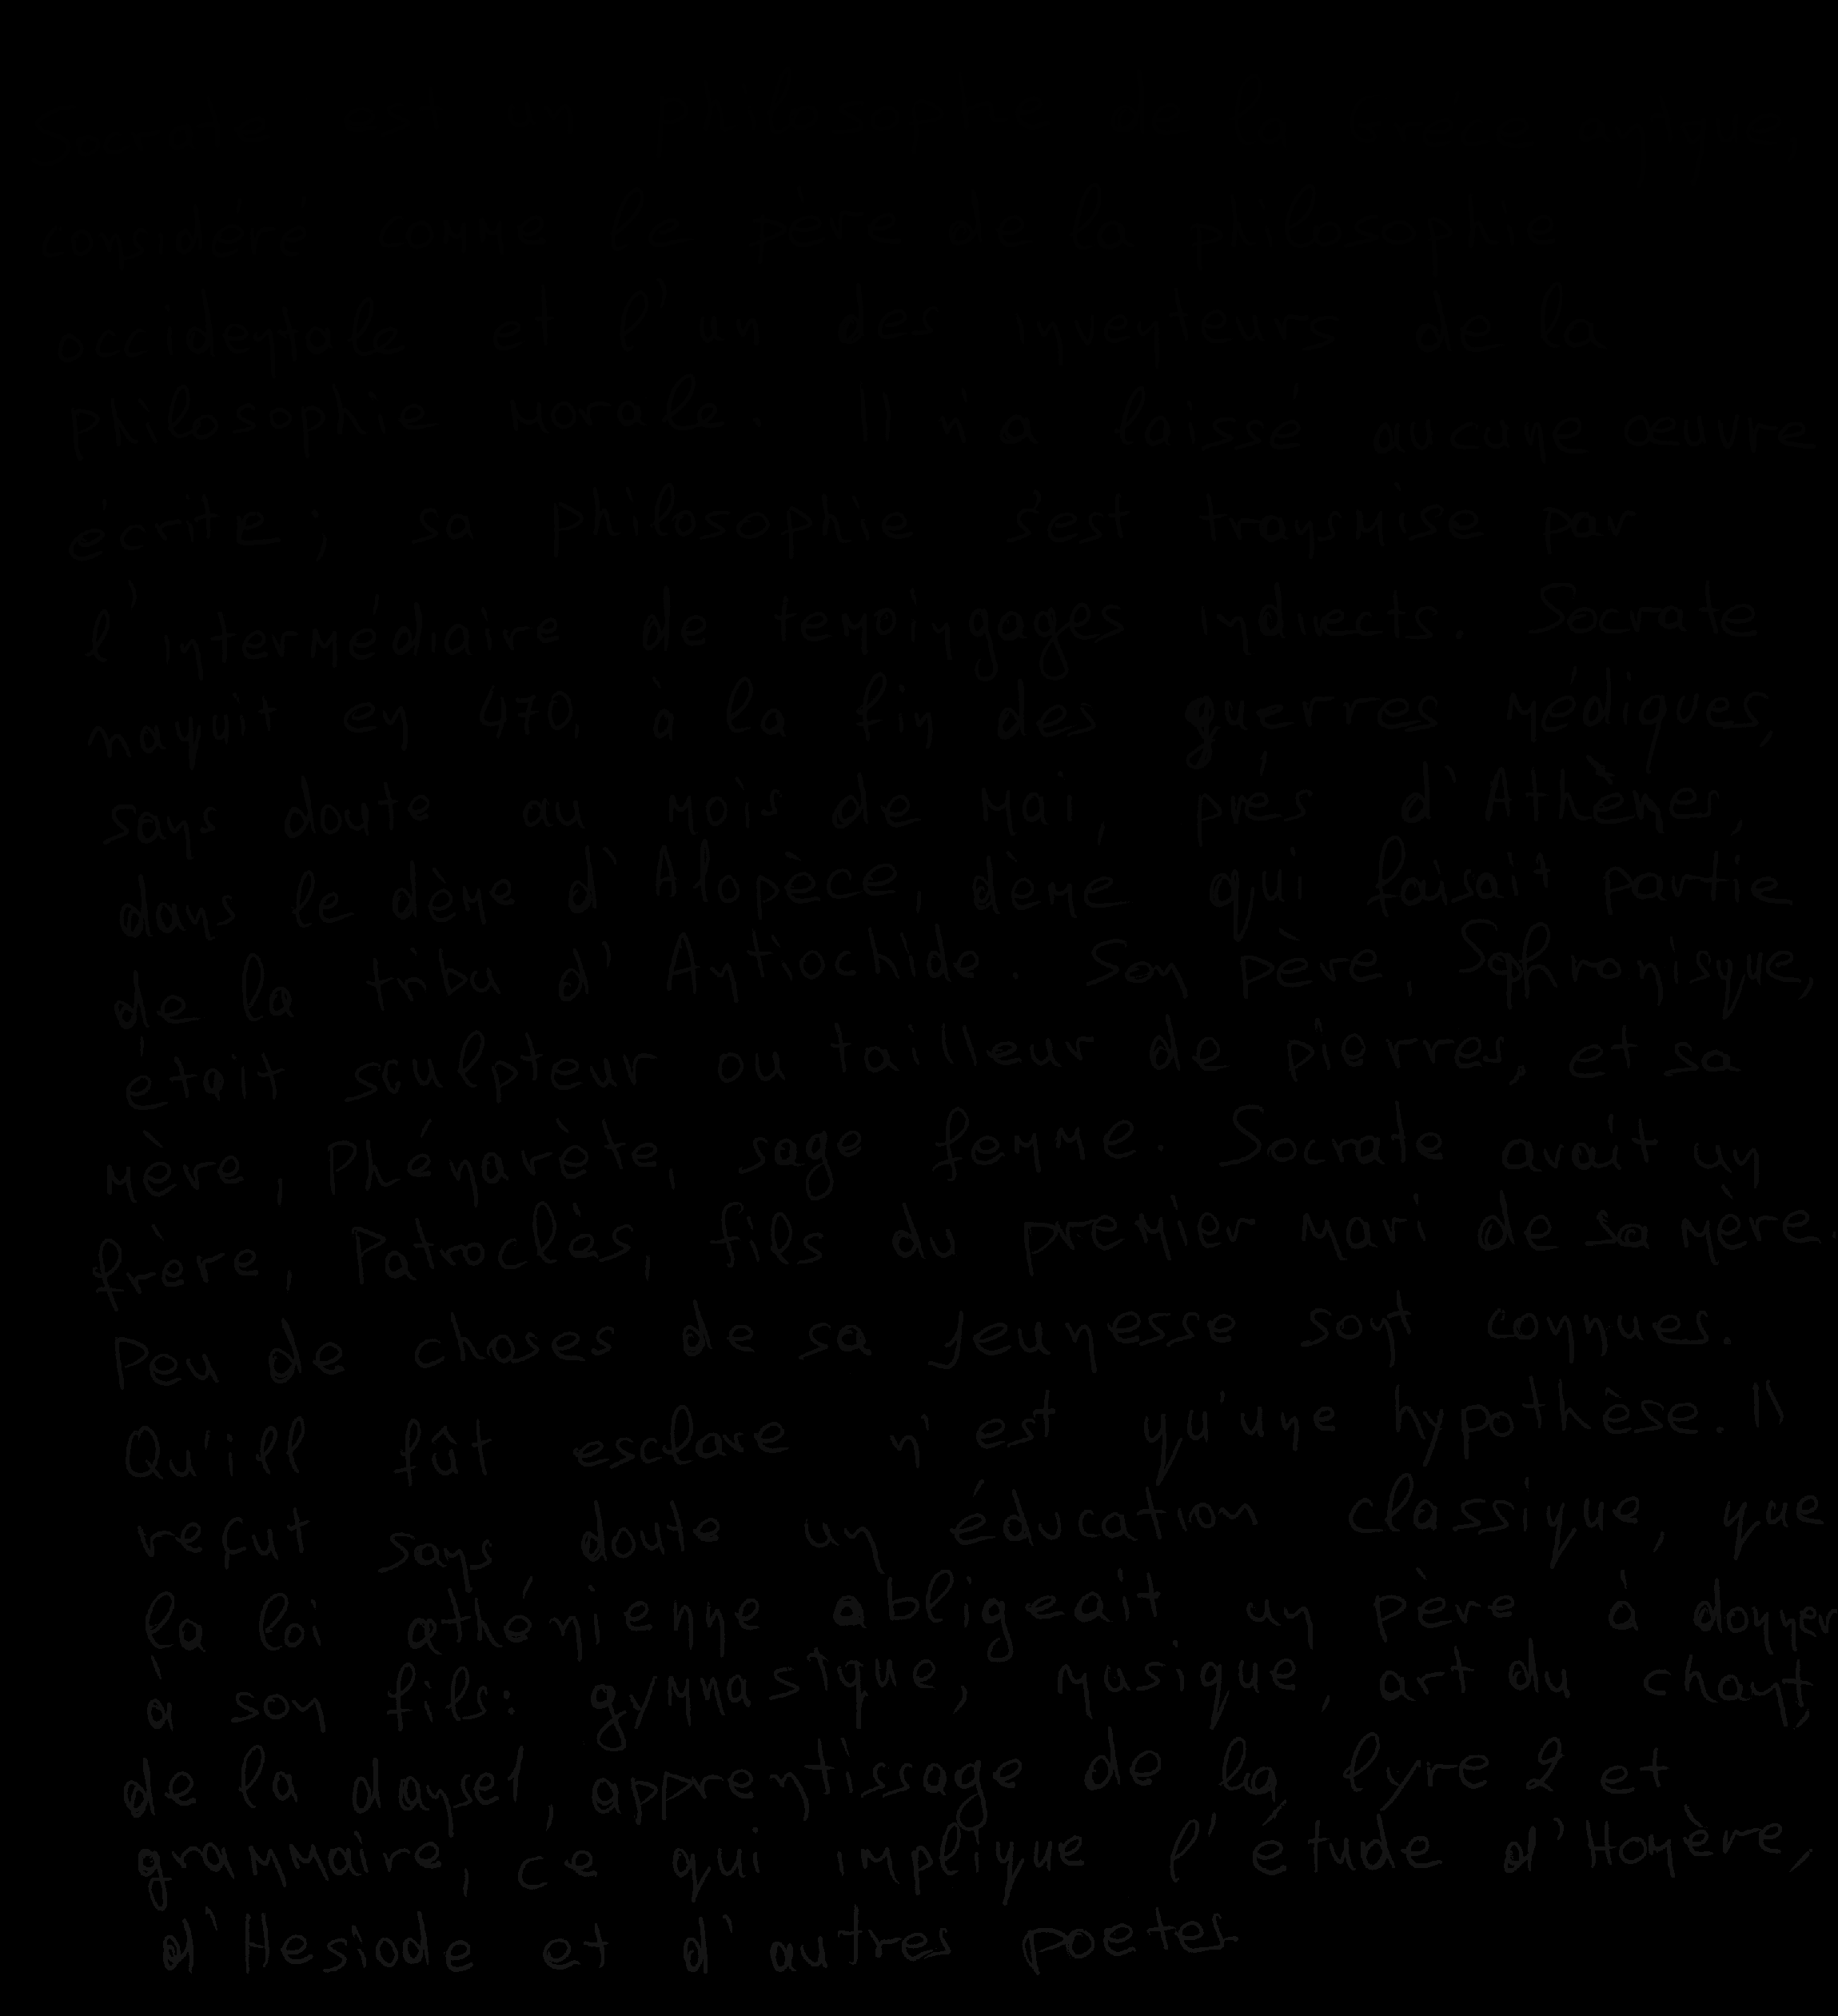 Socrate est un philosophe de la Grèce antique,
considéré comme le père de la philosophie
occidentale et l'un des inventeurs de la
philosophie morale. Il n'a laissé aucune œuvre
écrite; sa philosophie s'est transmise par
l'intermédiaire de temoingages indirects. Socrate
naquit en 470, à la fin des guerres médiques,
sans doute au mois de mai, prés d'Athènes,
dans le dème d'Alopèce, dème qui faisait partie
de la tribu d'Antiochide. Son père, Sophronisque,
était sculpteur ou tailleur de pierres, et sa
mère, Phénarète, sage femme. Socrate avait un
frère, Patroclès, fils du premier mari de sa mère.
Peu de choses de sa jeunesse sont connues.
Qu'ill fût esclave n'est qu'une hypothèse. Il
reçut sans doute un éducation classique, que
la loi athénienne obligeait un père à donner
à son fils: gymnastique, musique, art du chant,
de la danse1, apprentissage de la lyre 2 et
grammaire, ce qui implique l'étude d'Homère,
d'Hesiode et d'autres poetes